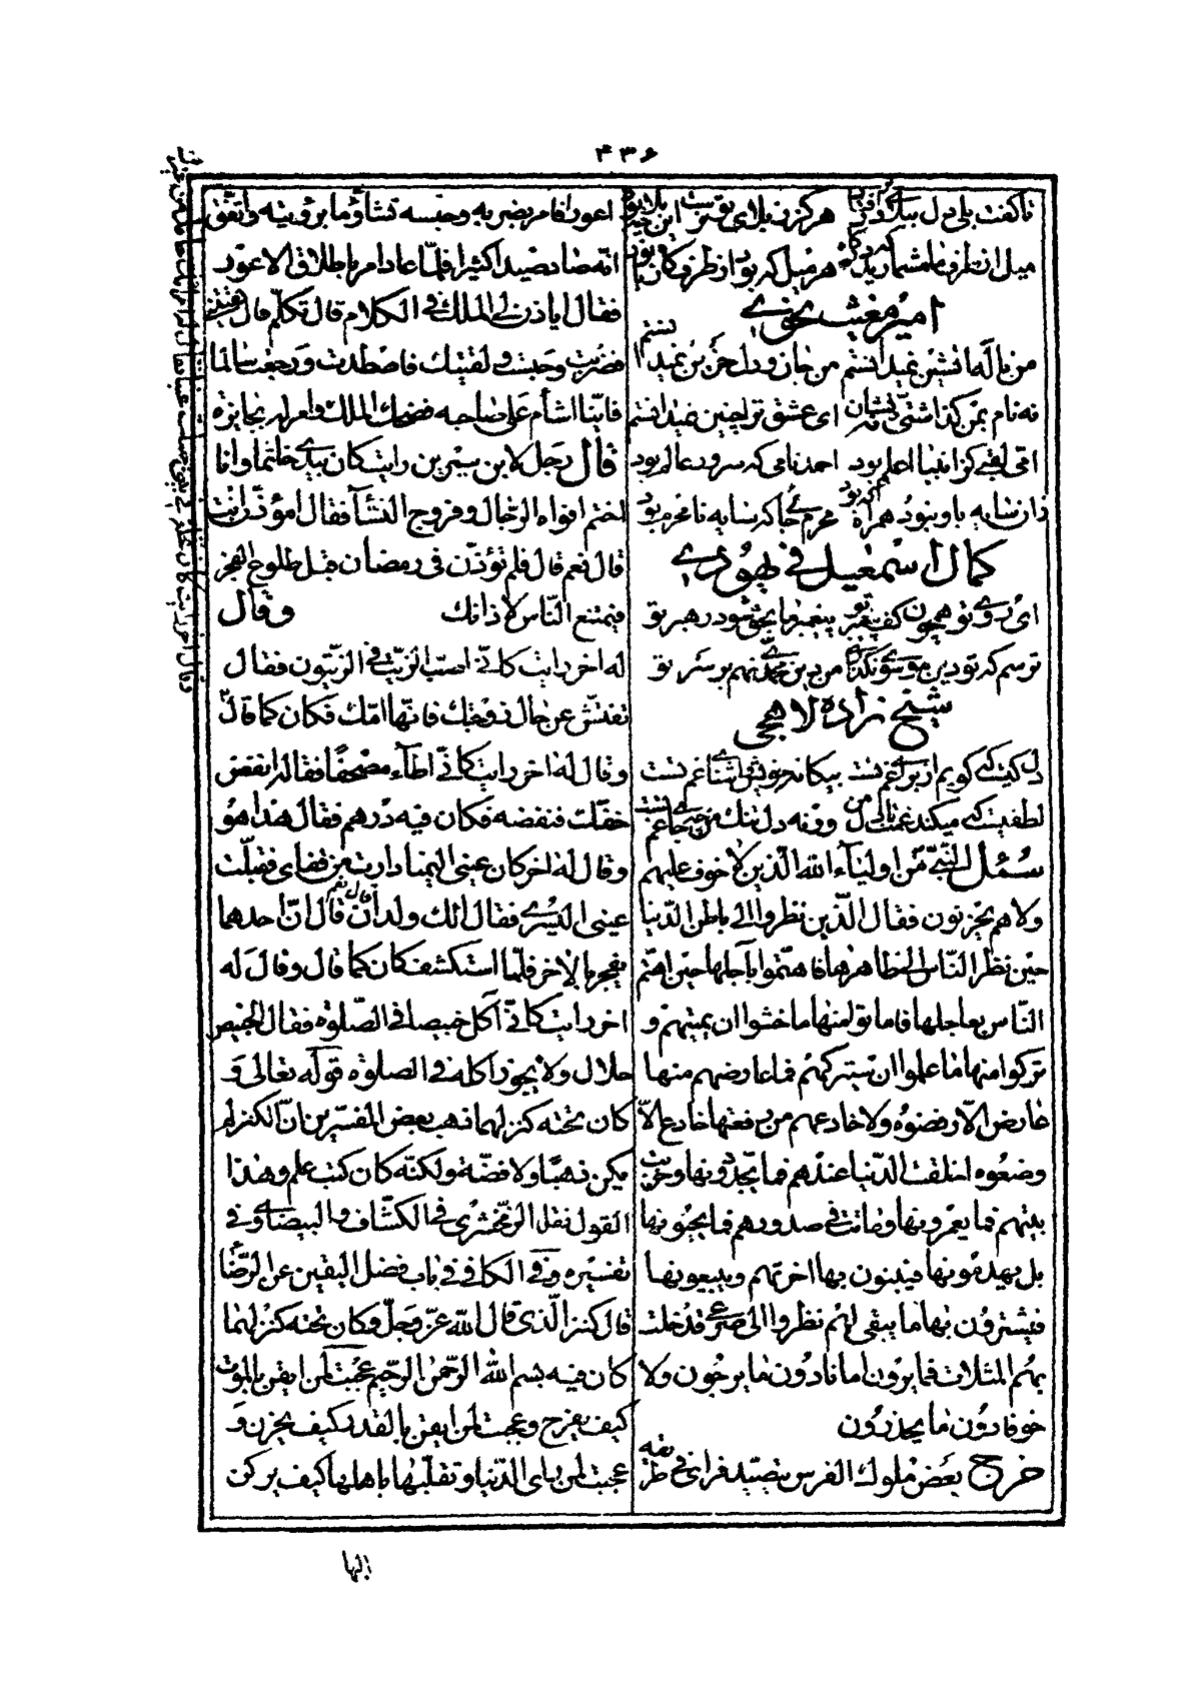 ۴۳۶
تا گفت بلی دل ببلا در هرگز نه بلای تو
میل از طرف ما مشمارید که هر میل که بود از طرف کان
امیر مغیث محوی
من با الم انشین نمیدانستم من جان و دل حزین نمیدانستم
نه نام بمن گذاشتی نه نشان ای عشق ترا چنین نمیدانستم
امی لقبی کز انبیا اعلم بود احمد نامی که سرور عالم بود
زان سایه باو نبود همراه که بود محرم جائی که سایه نامحرم بود
کمال اسمعیل فی یهودی
ای روی تو همچون کف پیغمبر تو پیغمبر ما بحق شود رهبر تو
ترسم که تو دین موسوی نگذاری من دین محمدی نهم بر سر تو
شیخ زاده لاهجی
دل کیست که گویم از برای غم تست بیگانه خویش آشنای غم تست
لطفیست که میکند غمت با دل من ورنه دل تنگ من چه جای غم تست
سئل النبی من اولیاء الله الذین لا خوف علیهم
ولا هم یحزنون فقال الذین نظروا الی باطن الدنیا
حین نظر الناس الی ظاهرها فاهتموا بآجلها حین اهتم
الناس بعاجلها فاماتو امنها ما خشوا ان یمیتهم و
ترکوا منها ما علموا ان سیترکهم فما عارضهم منها
عارض الا رفضوه ولا خادعهم من رفعتها خادع الا
وضعوه اخلقت الدنیا عندهم فما یجددونها وخربت
بینهم فما یعمرونها وماتت فی صدورهم فما یحیونها
بل یهدمونها فیبنون بها اخرتهم ویبیعونها
فیشترون بها ما یبقی لهم نظروا الی صرعی قد خلت
بهم المثلات فما یرون امانا دون ما یرجون ولا
خوفا دون ما یحذرون
خرج بعض ملوک الفرس یتصید فرای فی طریقه
اعورا فامر بضربه وحبسه تشاؤما برؤیته واتفق
انه صاد صیدا کثیرا فلما عاد امر باطلاق الاعور
فقال ایاذن لی الملک فی الکلام قال تکلم قال لقیتنی
فضربت وحبست ولقیتک فاصطدت ورجعت سالما
فاینا اشأم علی صاحبه فضحک الملک وامر له بجایزة
قال رجل لابن سیرین رایت کان بیدی خاتما وانا
اختم افواه الرجال وفروج النساء فقال امؤذن انت
قال نعم قال فلم تؤذن فی رمضان قبل طلوع الفجر
فیمتنع الناس لاذانک وقال
له اخر رایت کانی اصب الزیت فی الزیتون فقال
تفتش عن حال زوجتک فانها امک فکان کما قال
وقال له اخر رایت کانی اطاء مصحفا فقال انفض
خفک فنفضه فکان فیه درهم فقال هذا هو
وقال له اخر کان عینی الیمنی دارت من قفای فقبلت
عینی الیسری فقال الک ولدان قال نعم قال ان احدهما
یفجر بالاخر فلما استکشف کان کما قال وقال له
اخر رایت کانی آکل خبیصا فی الصلوة فقال الخبیص
حلال ولا یجوز اکله فی الصلوة قوله تعالی و
کان تحته کنز لهما ذهب بعض المفسرین ان الکنز لم
یکن ذهبا ولا فضة ولکنه کان کتب علم وهذا
القول نقل الزمخشری فی الکشاف والبیضاوی فی
تفسیره وفی الکافی فی باب فضل الیقین عن الرضا
قال کنز الذی قال الله عز وجل وکان تحته کنز لهما
کان فیه بسم الله الرحمن الرحیم عجبت لمن ایقن بالموت
کیف یفرح وعجبت لمن ایقن بالقدر کیف یحزن و
عجبت لمن رای الدنیا وتقلبها باهلها کیف یرکن
الیها